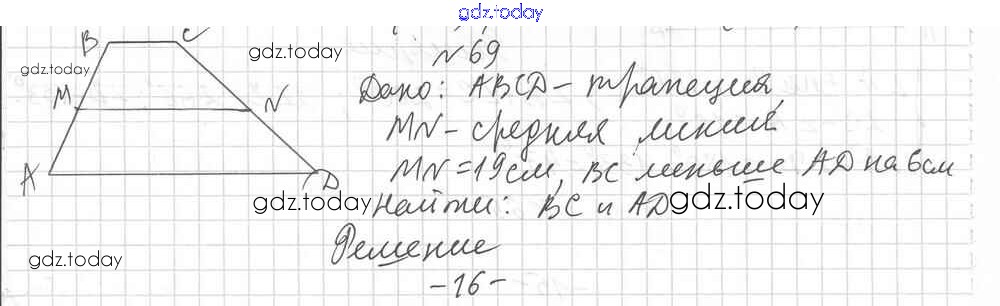 gdz.today
B C
gdz.today
№69
gdz.today
Дано: ABCD – трапеция,
M N
MN – средняя линия
MN = 19 см, BC меньше AD на 6 см
A D
gdz.today
Найти: BC и AD
gdz.today
Решение
gdz.today
– 16 –